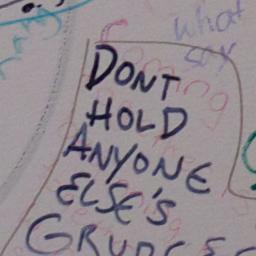 what
say
DONT
HOLD
ANYONE
ELSE'S